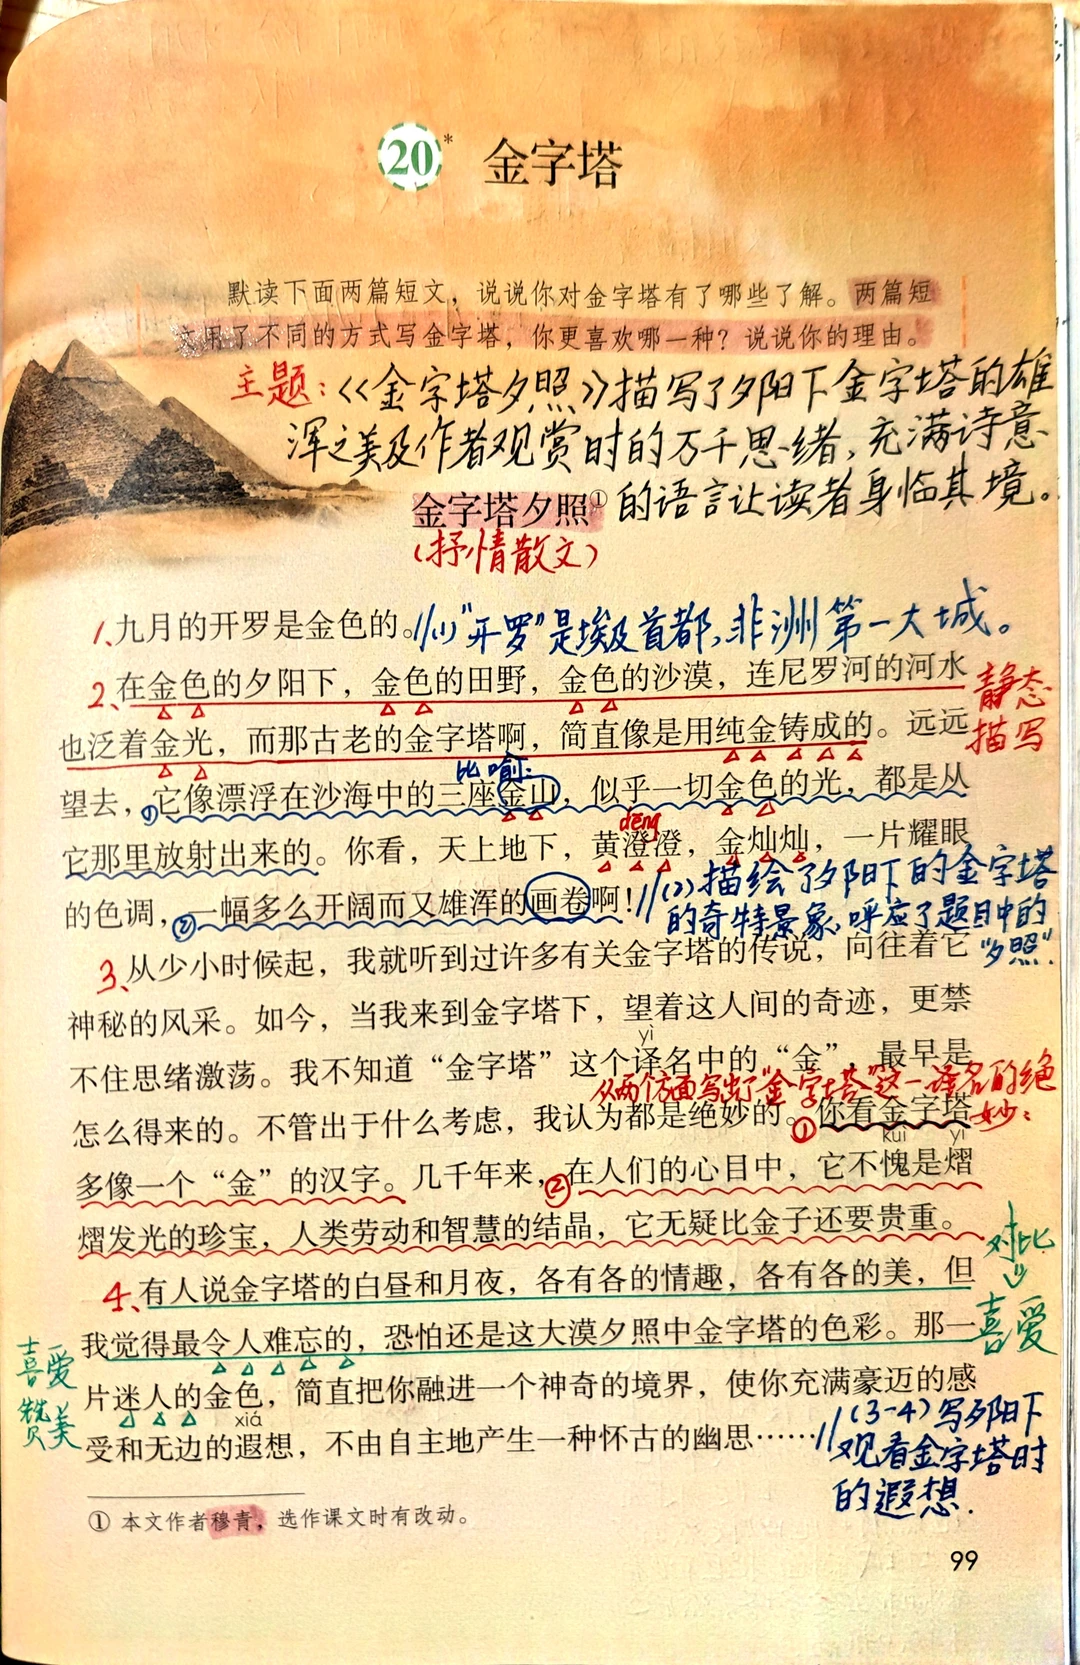 20* 金字塔
默读下面两篇短文，说说你对金字塔有了哪些了解。两篇短
文用了不同的方式写金字塔，你更喜欢哪一种？说说你的理由。
主题：《金字塔夕照》描写了夕阳下金字塔的雄
浑之美及作者观赏时的万千思绪，充满诗意
的语言让读者身临其境。
金字塔夕照①
（抒情散文）
1、九月的开罗是金色的。//(1)“开罗”是埃及首都，非洲第一大城。
2、在金色的夕阳下，金色的田野，金色的沙漠，连尼罗河的河水
静态
描写
也泛着金光，而那古老的金字塔啊，简直像是用纯金铸成的。远远
比喻：
望去，①它像漂浮在沙海中的三座金山，似乎一切金色的光，都是从
dēng
它那里放射出来的。你看，天上地下，黄澄澄，金灿灿，一片耀眼
的色调，②一幅多么开阔而又雄浑的画卷啊！//(2)描绘了夕阳下的金字塔
的奇特景象，呼应了题目中的
“夕照”.
3、从少小时候起，我就听到过许多有关金字塔的传说，向往着它
神秘的风采。如今，当我来到金字塔下，望着这人间的奇迹，更禁
yì
不住思绪激荡。我不知道“金字塔”这个译名中的“金”，最早是
从两个方面写出了“金字塔”这一译名的绝
妙：
怎么得来的。不管出于什么考虑，我认为都是绝妙的。①你看金字塔
kuì yì
多像一个“金”的汉字。几千年来，②在人们的心目中，它不愧是熠
熠发光的珍宝，人类劳动和智慧的结晶，它无疑比金子还要贵重。
对比
喜爱
4、有人说金字塔的白昼和月夜，各有各的情趣，各有各的美，但
我觉得最令人难忘的，恐怕还是这大漠夕照中金字塔的色彩。那一
喜爱
赞美
片迷人的金色，简直把你融进一个神奇的境界，使你充满豪迈的感
xiá
受和无边的遐想，不由自主地产生一种怀古的幽思……//(3-4)写夕阳下
观看金字塔时
的遐想.
① 本文作者穆青，选作课文时有改动。
99